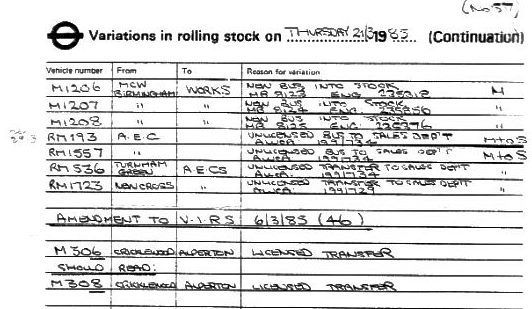 (No 57)
Variations in rolling stock on THURSDAY 21/3 1985 (Continuation)
Vehicle number From To Reason for variation
M1206 MCW BIRMINGHAM WORKS NEW BUS INTO STOCK M
MB 8123 ENG.
M1207 " " NEW BUS INTO STOCK
MB 8124 ENG.
M1208 " " NEW BUS INTO STOCK
MB 8125 ENG.
RM193 A.E.C UNLICENSED BUS TO SALES DEP'T M to S
AWCA 199/734
RM1557 " UNLICENSED BUS TO SALES DEP'T M to S
AWCA 199/734
RM536 TURNHAM GREEN A.E.C.S UNLICENSED TRANSFER TO SALES DEPT
AWCA 199/734
RM1723 NEW CROSS " UNLICENSED TRANSFER TO SALES DEPT
AWCA
AMENDMENT TO V.I.R.S 6/3/85 (46)
M306 CRICKLEWOOD ALPERTON LICENSED TRANSFER
SHOULD READ:
M308 CRICKLEWOOD ALPERTON LICENSED TRANSFER